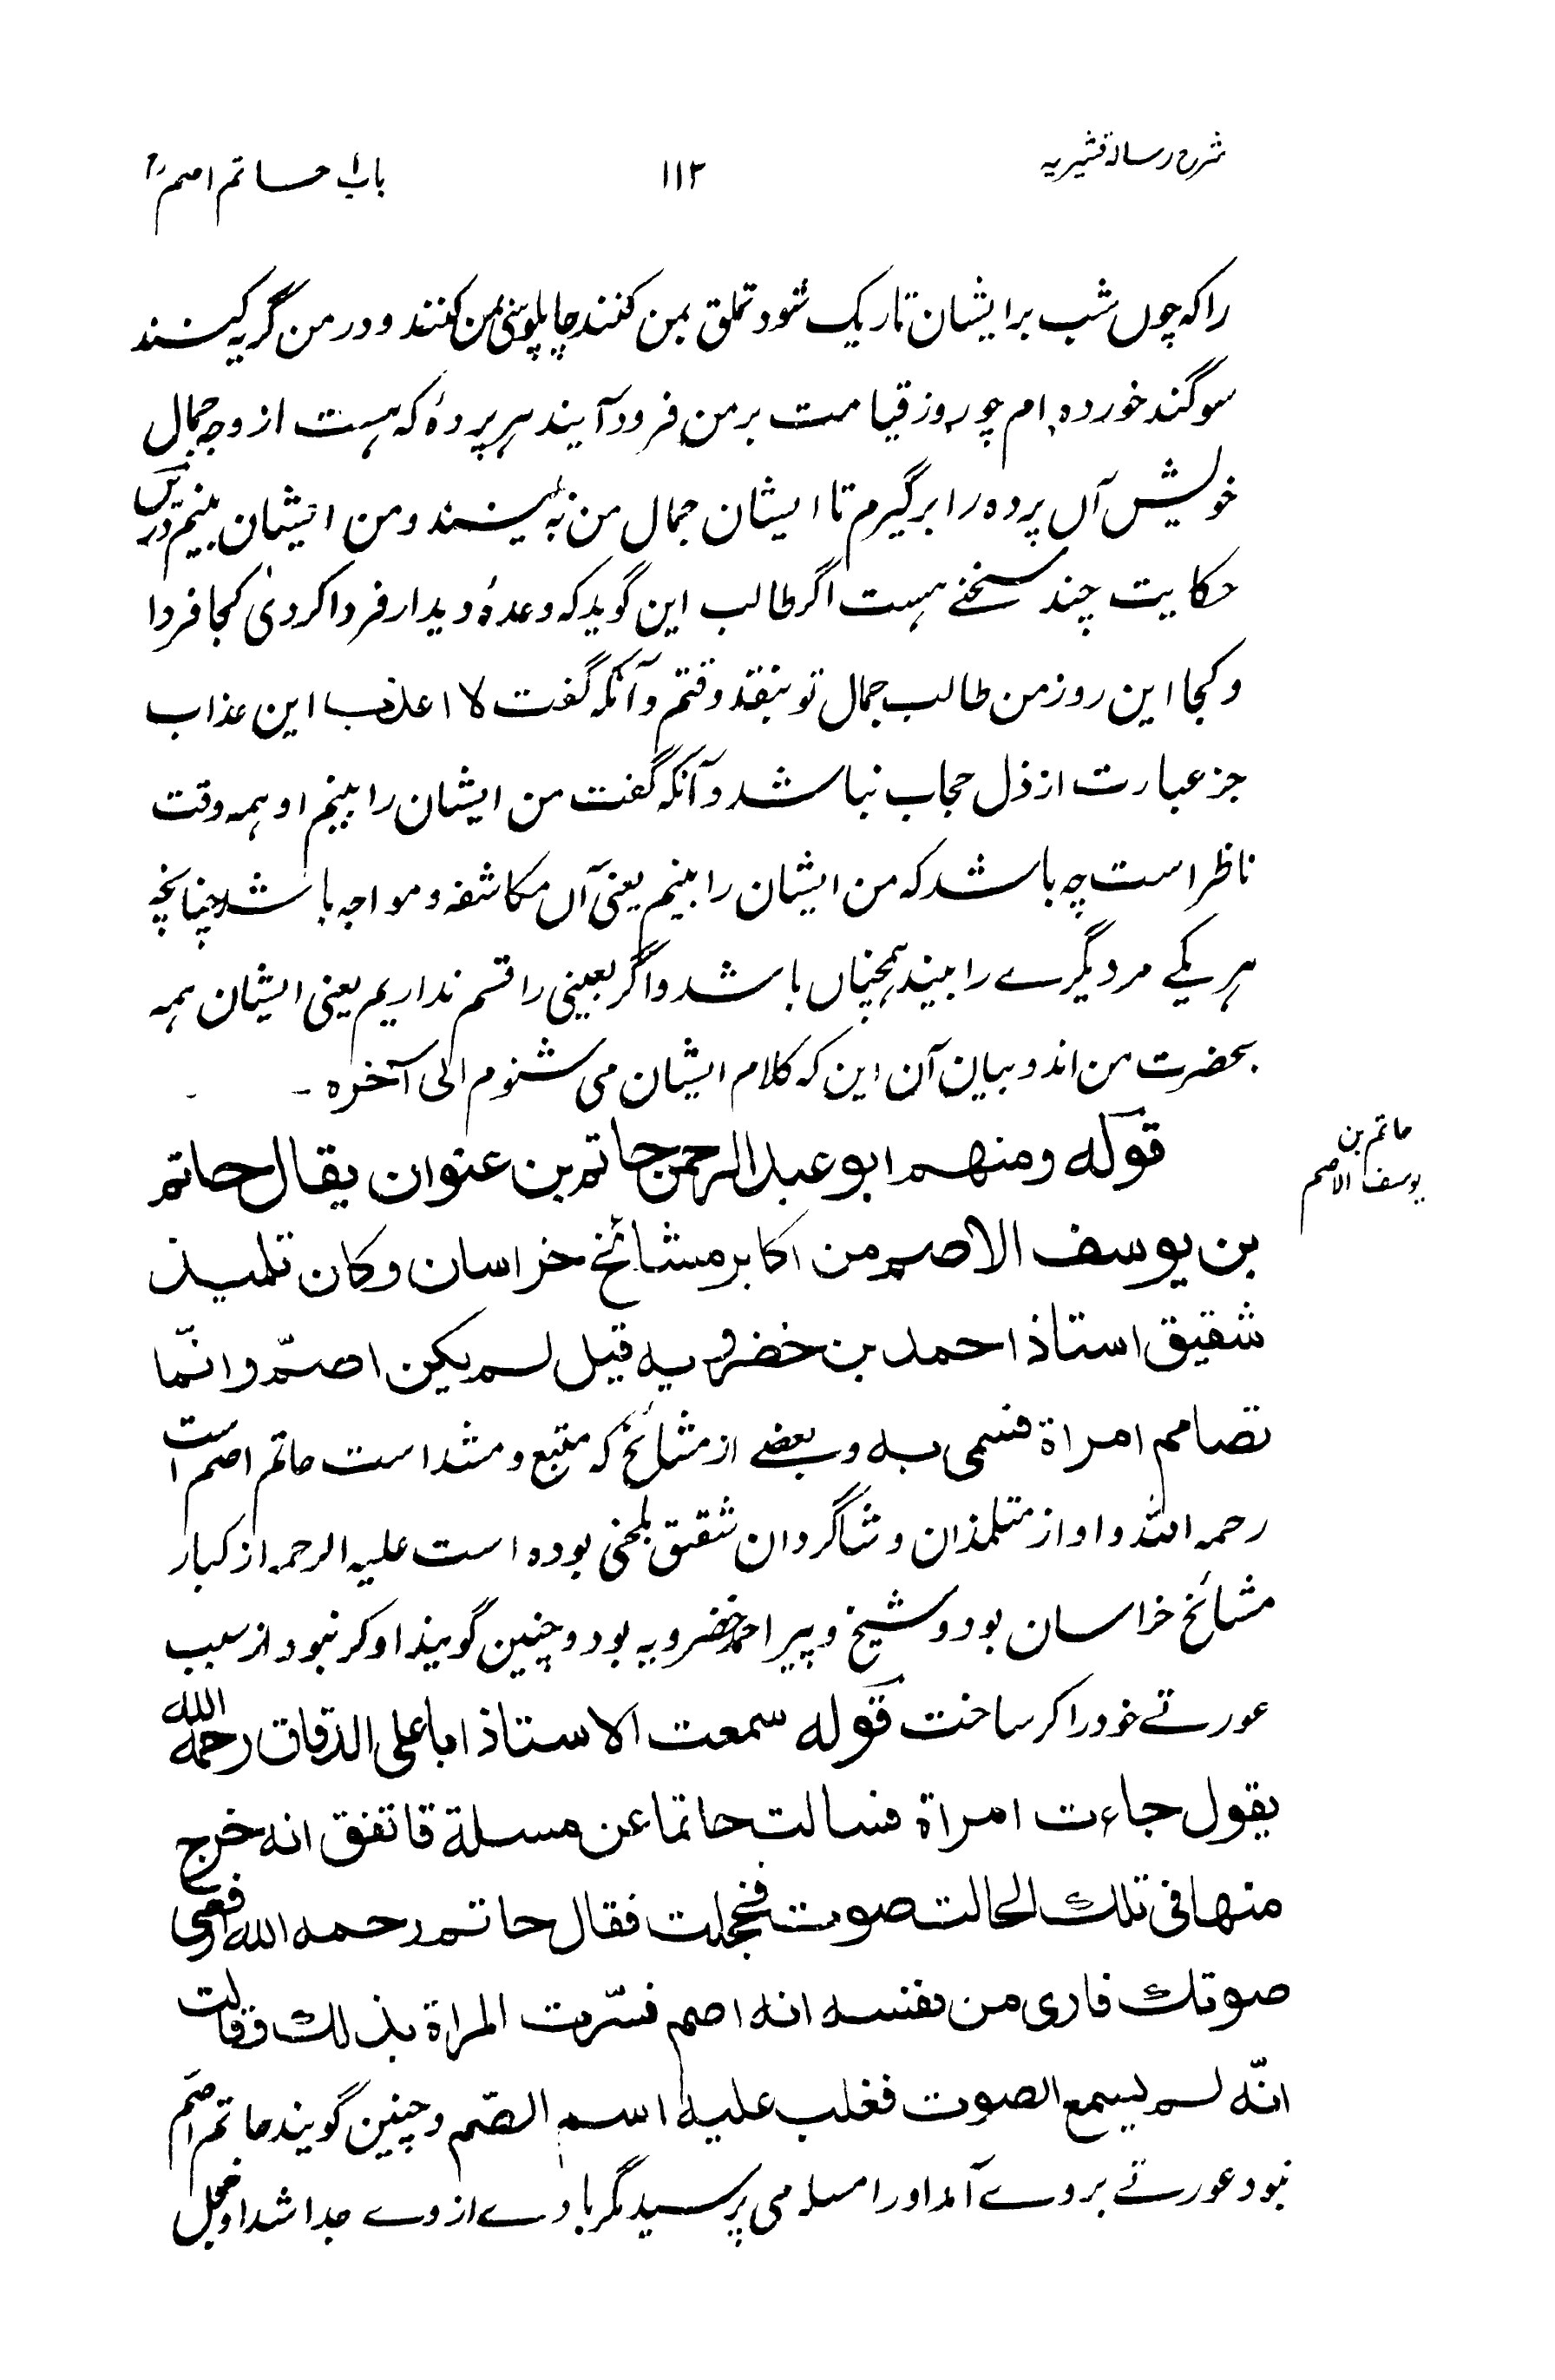 شرح رسالۂ قشیریہ
۱۱۲
باب حاتم اصمؒ
را کہ چوں شب بر ایشان تاریک شود تملق بمن کنند چاپلوسی بمن کنند و در من گریہ کنند
سوگند خوردہ ام چو روز قیامت بر من فرود آیند ہر پردۂ کہ ہست از وجہ جمال
خویش آں پردہ را برگیرم تا ایشان جمال من بہ بینند و من ایشان بینم دریں
حکایت چند سخنے ہست اگر طالب این گوید کہ وعدۂ دیدار فردا کردی کجا فردا
و کجا این روز من طالب جمال تو بنقد وقتم و آنکہ گفت لا اعذب این عذاب
جز عبارت از ذل حجاب نباشد و آنکہ گفت من ایشان را بینم او ہمہ وقت
ناظر است چہ باشد کہ من ایشان را بینم یعنی آں مکاشفہ و مواجہ باشد چنانچہ
ہر یکے مر دیگرے را بیند ہمچناں باشد و اگر بعینی را قسم نداریم یعنی ایشان ہمہ
بحضرت من اند و بیان آن این کہ کلام ایشان می شنوم الی آخرہ ۔
حاتم بن
یوسف الاصم
قولہ ومنہم ابو عبد الرحمن حاتم بن عنوان یقال حاتم
بن یوسف الاصم من اکابر مشائخ خراسان وکان تلمیذ
شقیق استاذ احمد بن خضرویہ قیل لم یکن اصمّ وانّما
تصامم امراة فسمی بہ و بعضے از مشائخ کہ متبع و مثداست حاتم اصم است
رحمہ اللہ و او از متلمذان و شاگردان شقیق بلخی بودہ است علیہ الرحمہ از کبار
مشائخ خراسان بود و شیخ و پیر احمد خضرویہ بود و چنین گویند او کر نبود از سبب
عورتے خود را کر ساخت قولہ سمعت الاستاذ اباعلی الدقاق رحمہ اللہ
یقول جاءت امراة فسالت حاتما عن مسلة فاتفق انہ خرج
منھا فی تلک الحالت صوت فخجلت فقال حاتم رحمہ اللہ ارفعی
صوتک فاری من نفسہ انہ اصم فسّرت المراة بذلک فقالت
انّہ لم یسمع الصوت فغلب علیہ اسم الصّم و چنین گویند حاتم اصمّ
نبود عورتے بر وے آمد اورا مسلہ می پرسید مگر بادے از وے جدا شد او خجل